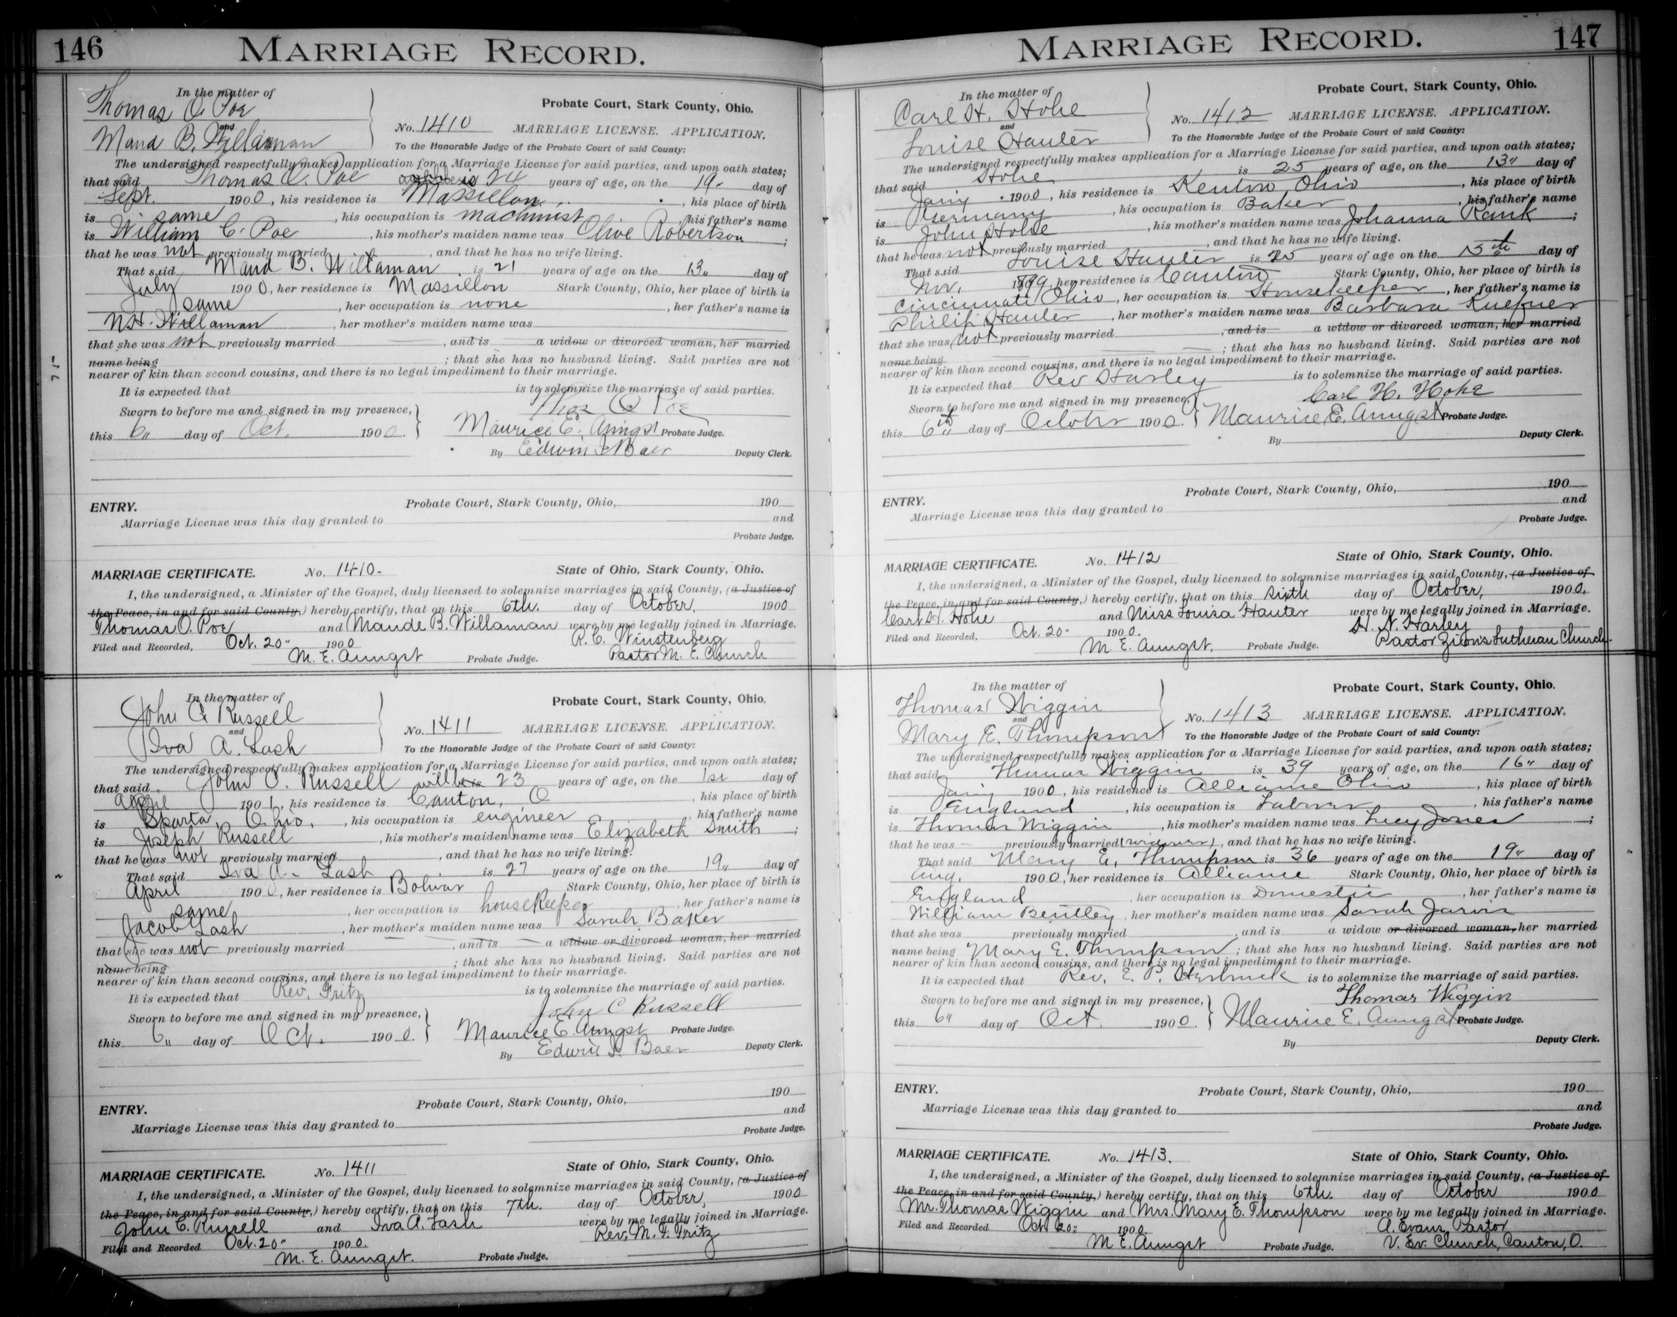 146
MARRIAGE RECORD.
In the matter of
Thomas O. Poe
and
Maud B. Willaman
Probate Court, Stark County, Ohio.
No. 1410 MARRIAGE LICENSE. APPLICATION.
To the Honorable Judge of the Probate Court of said County:
The undersigned respectfully makes application for a Marriage License for said parties, and upon oath states;
that said Thomas O. Poe is 24 years of age, on the 19" day of
Sept. 1900, his residence is Massillon, his place of birth
is same, his occupation is machinist, his father's name
is William C. Poe, his mother's maiden name was Olive Robertson;
that he was not previously married, and that he has no wife living.
That said Maud B. Willaman is 21 years of age on the 13" day of
July 1900, her residence is Massillon Stark County, Ohio, her place of birth is
same, her occupation is none, her father's name is
N.H. Willaman, her mother's maiden name was
that she was not previously married, and is a widow or divorced woman, her married
name being ; that she has no husband living. Said parties are not
nearer of kin than second cousins, and there is no legal impediment to their marriage.
It is expected that is to solemnize the marriage of said parties.
Thos O Poe
Sworn to before me and signed in my presence,
this 6" day of Oct. 1900. Maurice E. Aungst Probate Judge.
By Edwin S Baer Deputy Clerk.
ENTRY. Probate Court, Stark County, Ohio, 190
Marriage License was this day granted to and
Probate Judge.
MARRIAGE CERTIFICATE. No. 1410- State of Ohio, Stark County, Ohio.
I, the undersigned, a Minister of the Gospel, duly licensed to solemnize marriages in said County, (a Justice of
the Peace, in and for said County,) hereby certify, that on this 6th. day of October, 1900
Thomas O. Poe and Maude B. Willaman were by me legally joined in Marriage.
Filed and Recorded, Oct. 20- 1900 R. C. Winstenberg
M. E. Aungst Probate Judge. Pastor M. E. Church
In the matter of
John C. Russell
and
Iva A. Lash
Probate Court, Stark County, Ohio.
No. 1411 MARRIAGE LICENSE. APPLICATION.
To the Honorable Judge of the Probate Court of said County:
The undersigned respectfully makes application for a Marriage License for said parties, and upon oath states;
that said John C. Russell will be 23 years of age, on the 1st day of
190, his residence is Canton, O, his place of birth
is Sparta, Ohio, his occupation is engineer, his father's name
is Joseph Russell, his mother's maiden name was Elizabeth Smith;
that he was not previously married, and that he has no wife living.
That said Iva A. Lash is 27 years of age on the 19" day of
April 1900, her residence is Bolivar Stark County, Ohio, her place of birth is
same, her occupation is housekeeper, her father's name is
Jacob Lash, her mother's maiden name was Sarah Baker
that she was not previously married, and is a widow or divorced woman, her married
name being ; that she has no husband living. Said parties are not
nearer of kin than second cousins, and there is no legal impediment to their marriage.
It is expected that Rev. Fritz is to solemnize the marriage of said parties.
John C Russell
Sworn to before me and signed in my presence,
this 6" day of Oct. 1900. Maurice E. Aungst Probate Judge.
By Edwin S. Baer Deputy Clerk.
ENTRY. Probate Court, Stark County, Ohio, 190
Marriage License was this day granted to and
Probate Judge.
MARRIAGE CERTIFICATE. No. 1411 State of Ohio, Stark County, Ohio.
I, the undersigned, a Minister of the Gospel, duly licensed to solemnize marriages in said County, (a Justice of
the Peace, in and for said County,) hereby certify, that on this 7th. day of October, 1900
John C. Russell and Iva A. Lash were by me legally joined in Marriage.
Filed and Recorded Oct. 20- 1900. Rev. M. F. Fritz
M. E. Aungst. Probate Judge.
MARRIAGE RECORD. 147
In the matter of
Carl H. Hohe
and
Louise Hauter
Probate Court, Stark County, Ohio.
No. 1412 MARRIAGE LICENSE. APPLICATION.
To the Honorable Judge of the Probate Court of said County:
The undersigned respectfully makes application for a Marriage License for said parties, and upon oath states;
that said Hohe is 25 years of age, on the 13" day of
Jany 1900, his residence is Kenton, Ohio, his place of birth
is Germany, his occupation is Baker, his father's name
is John Hohe, his mother's maiden name was Johanna Rank;
that he was not previously married, and that he has no wife living.
That said Louise Hauter is 25 years of age on the 15th day of
Nov. 1899, her residence is Canton Stark County, Ohio, her place of birth is
Cincinnati Ohio, her occupation is Housekeeper, her father's name is
Philip Hauter, her mother's maiden name was Barbara Kuefner
that she was not previously married, and is a widow or divorced woman, her married
name being ; that she has no husband living. Said parties are not
nearer of kin than second cousins, and there is no legal impediment to their marriage.
It is expected that Rev Harley is to solemnize the marriage of said parties.
Carl H. Hohe
Sworn to before me and signed in my presence,
this 6th day of October 1900. Maurice E. Aungst Probate Judge.
By Deputy Clerk.
ENTRY. Probate Court, Stark County, Ohio, 190
Marriage License was this day granted to and
Probate Judge.
MARRIAGE CERTIFICATE. No. 1412 State of Ohio, Stark County, Ohio.
I, the undersigned, a Minister of the Gospel, duly licensed to solemnize marriages in said County, (a Justice of
the Peace, in and for said County,) hereby certify, that on this sixth day of October, 1900.
Carl H. Hohe and Miss Louisa Hauter were by me legally joined in Marriage.
Filed and Recorded, Oct. 20- 1900. H. N. Harley
M. E. Aungst. Probate Judge. Pastor Zion's Lutheran Church.
In the matter of
Thomas Wiggin
and
Mary E. Thompson
Probate Court, Stark County, Ohio.
No. 1413 MARRIAGE LICENSE. APPLICATION.
To the Honorable Judge of the Probate Court of said County:
The undersigned respectfully makes application for a Marriage License for said parties, and upon oath states;
that said Thomas Wiggin is 39 years of age, on the 16" day of
Jany 1900, his residence is Alliance Ohio, his place of birth
is England, his occupation is Laborer, his father's name
is Thomas Wiggin, his mother's maiden name was Lucy Jones;
that he was previously married (widower), and that he has no wife living.
That said Mary E. Thompson is 36 years of age on the 19" day of
Aug. 1900, her residence is Alliance Stark County, Ohio, her place of birth is
England, her occupation is Domestic, her father's name is
William Bentley, her mother's maiden name was Sarah Jarvis
that she was previously married, and is a widow or divorced woman, her married
name being Mary E. Thompson; that she has no husband living. Said parties are not
nearer of kin than second cousins, and there is no legal impediment to their marriage.
It is expected that Rev. E. P. Herbruck is to solemnize the marriage of said parties.
Thomas Wiggin
Sworn to before me and signed in my presence,
this 6" day of Oct. 1900. Maurice E. Aungst Probate Judge.
By Deputy Clerk.
ENTRY. Probate Court, Stark County, Ohio, 190
Marriage License was this day granted to and
Probate Judge.
MARRIAGE CERTIFICATE. No. 1413. State of Ohio, Stark County, Ohio.
I, the undersigned, a Minister of the Gospel, duly licensed to solemnize marriages in said County, (a Justice of
the Peace, in and for said County,) hereby certify, that on this 6th. day of October 1900
Mr. Thomas Wiggin and Mrs. Mary E. Thompson were by me legally joined in Marriage.
Filed and Recorded Oct. 20- 1900. A. Evans, Pastor
M. E. Aungst Probate Judge. U. Ev. Church, Canton, O.